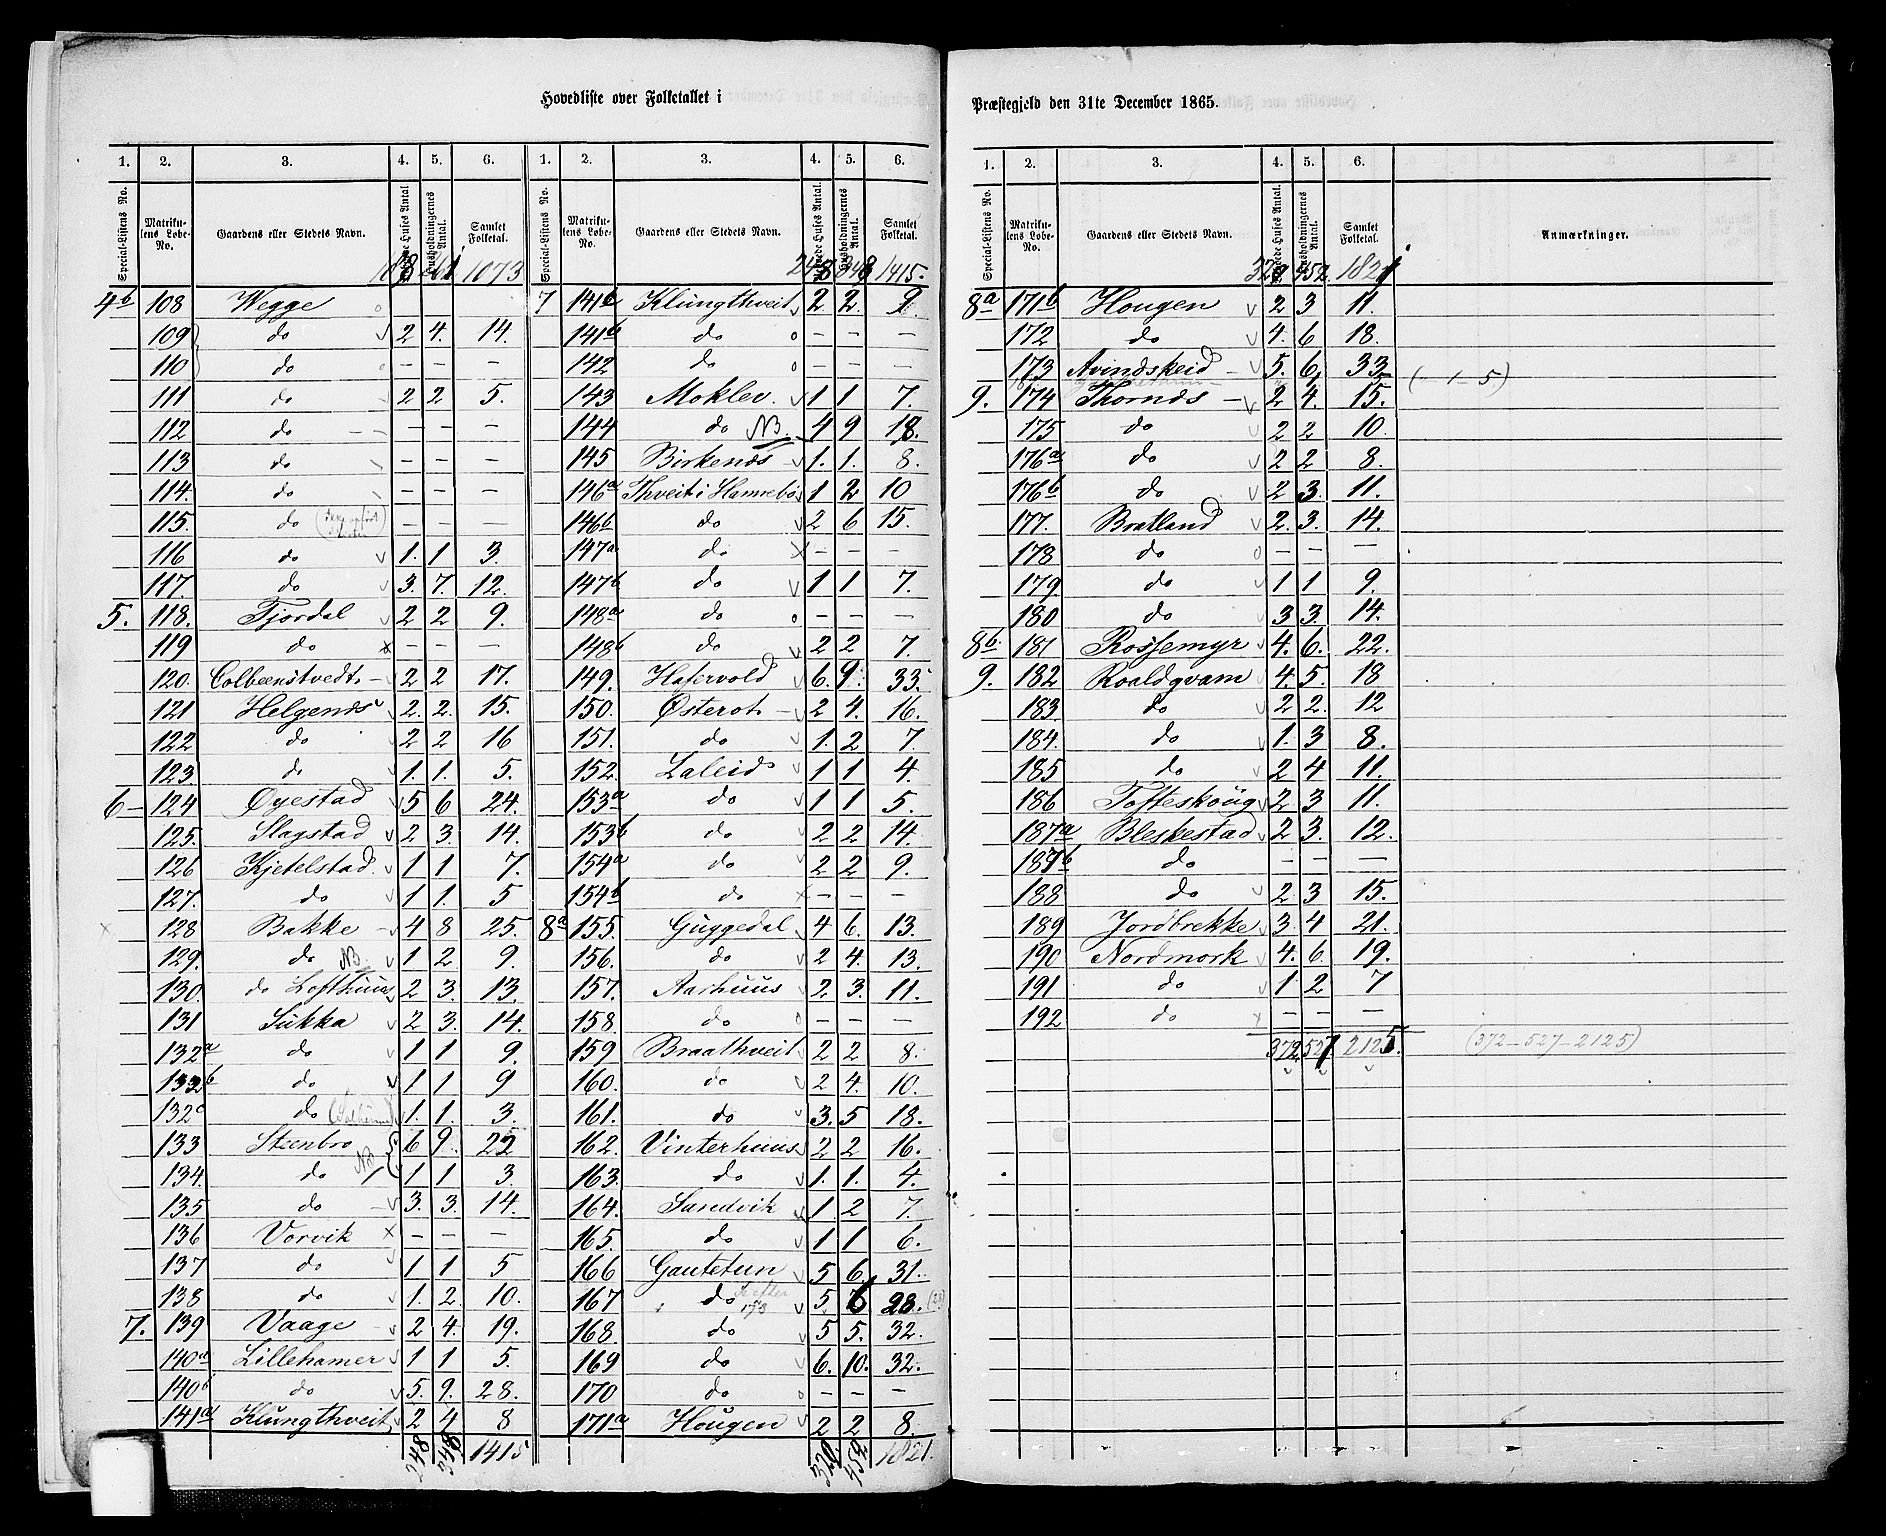 Hovedliste over Folketallet i
1. 2. 3. 4. 5. 6. 1. 2. 3. 4. 5. 6.
Special-Listens No. Matrikulens Løbe-No. Gaardens eller Stedets Navn. Huses Antal Husholdningernes Antal. Samlet Folketal. Special-Listens No. Matrikulens Løbe-No. Gaardens eller Stedets Navn. beboede Huses Antal. Husholdningernes Antal. Samlet Folketal.
261 1073 248 348 1415.
4b 108 Wegge o
109 do v 2 4. 14.
110 do o — — —
111 do 2 2 5.
112 do — — —
113 do — — —
114. do — — —
115. do — — —
116 do v 1. 1 3.
117. do v 3. 7. 12.
5. 118. Fjørdal v 2 2 9.
119 do x — — —
120. Colbeenstvedt 2 2 17.
121 Helgenæs 2. 2. 15.
122 do 2 2 16
123. do 1. 1. 5.
6 — 124 Øyestad v 5 6 24.
125. Slagstad v 2 3. 14.
126 Kjetelstad. v 1 1 7.
127. do v 1 1. 5
128 Bakke v 4 8 25.
129. do NB. v 1 2 9.
130. do Lofthuus v 2 3. 13.
131 Sukka v 2 3. 14.
132a do v 1 1 9.
132b do v 1 1 9
132c do v 1. 1. 3.
133 Steenbro 6 9. 25
134. do NB 1 1 3.
135 do v 3. 3. 14.
136 Vorvik x — — —
137 do v 1 1 5
138 do v 1. 2. 10.
7. 139 Vaage v 2 4. 19.
140a Lillehamer v 1 1 5.
140b do v 5. 9. 28.
141a Klungthveit v 2 4 8
248 348 1415
7 141b Klungthveit v 2 2. 9.
141b do o — — —
142 do o — — —
143 Moklev. v 1 1 7.
144 do NB. 4 9 18.
145 Birkenæs v 1. 1. 8.
146a Thveit i Hannebo 1 2 10
146b do v 2 6 15.
147a do x — — —
147b do v 1 1 7.
148a do o — — —
148b do v 2 2 7.
149. Hatervold v 6. 9. 33.
150. Østerot 2 4. 16.
151. do v 1. 2 7.
152. Laleid v 1 1 4.
153a do v 1 1 5.
153b do v 2 2 14.
154a do 2 2 9.
154b do x — — —
8a 155. Guggedal v 4 6. 13.
156. do v 2 4. 13.
157. Aarhuus v 2 3. 11.
158. do o — — —
159 Braathveit v 2 2 8.
160. do v 2 4. 10.
161. do v 3. 5 18.
162. Vinterhuus v 2 2 16.
163. do v 1. 1. 4.
164. Sandvik v 1 2 7.
165. do v 1 1 6.
166 Gautetun v 5 6. 31.
167 do v 5. 6 28.
168. do v 5 5. 32.
169 do v 6. 10. 32.
170 do o — — —
171a Hougen v 2 2 8.
452 1821.
Præstegjeld den 31te December 1865.
1. 2. 3. 4. 5. 6.
Special-Listens No. Matrikulens Løbe-No. Gaardens eller Stedets Navn. beboede Huses Antal. Husholdningernes Antal. Samlet Folketal. Anmærkninger.
452 1821
8a 171b Hougen v 2 3 11.
172 do v 4. 6 18.
173 Avindskeid 5. 6. 33 (— 1 — 5)
9. 174 Thornæs v 2 4. 15.
175 do v 2 2 10.
176a do v 2 2 8.
176b do v 2 3. 11.
177. Bratland v 2. 3. 14.
178 do o — — —
179 do v 1 1 9.
180 do v 3 3. 14.
8b. 181 Rossemyr v 4. 6. 22.
9. 182 Roaldqvam v 4. 5. 18
183. do v 2 2. 12
184. do v 1. 3 8.
185 do v 2 4 11.
186 Tofteskoug v 2 3 11.
187a Bleskestad v 2 3. 12.
187b do — — —
188 do v 2 3 15.
189 Jordbrekke v 3. 4 21.
190 Nordmork v 4. 6. 19.
191 do v 1 2 7
192 do x — — —
372. 527 2125. (372 — 527 — 2125)